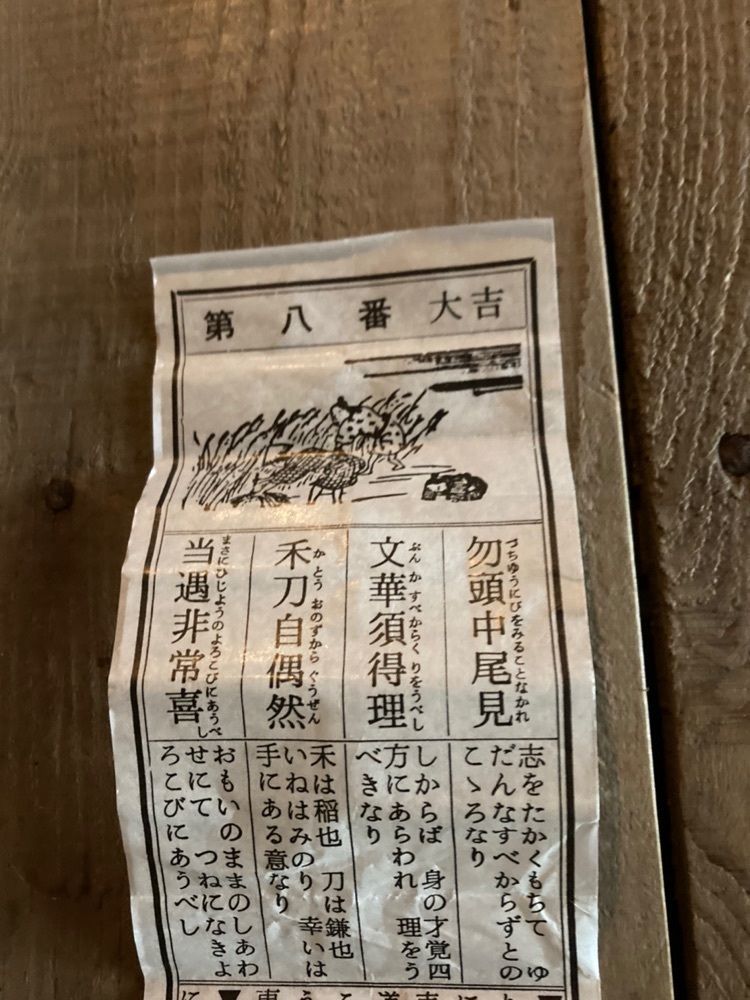 第八番 大吉
勿頭中尾見
づちゆうにびをみることなかれ
文華須得理
ぶん か すべからく りをうべし
禾刀自偶然
か とう おのずから ぐうぜん
当遇非常喜
まさにひじようのよろこびにあうべし
志をたかくもちて ゆ
だんなすべからずとの
こゝろなり
しからば 身の才覚四
方にあらわれ 理をう
べきなり
禾は稲也 刀は鎌也
いねはみのり 幸いは
手にある意なり
おもいのままのしあわ
せにて つねになきよ
ろこびにあうべし